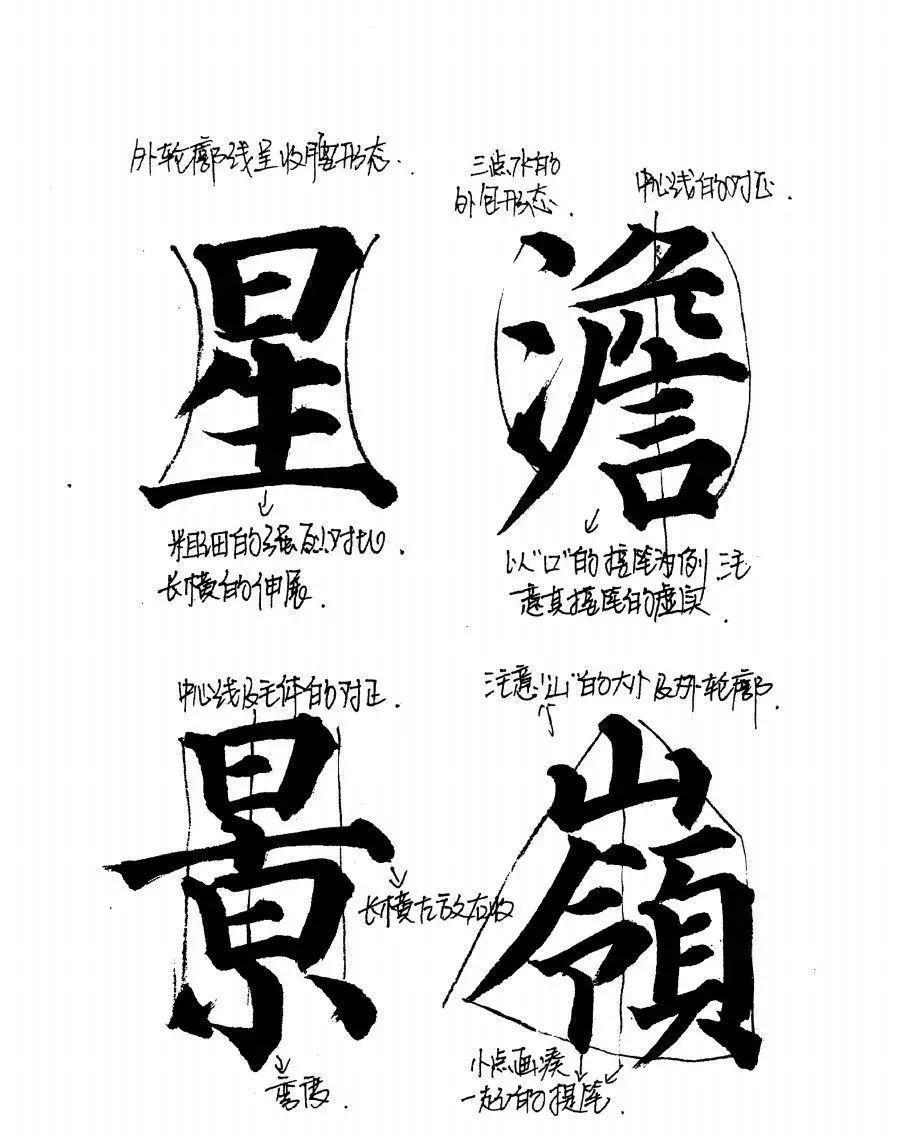 外轮廓线呈收腰形态.
三点水的
外包形态.
中心线的对正.
星
澹
粗细的强烈对比.
长横的伸展.
以“口”的接笔为例 注
意其接笔的虚实.
中心线及主体的对正.
注意“山”的大小及外轮廓.
景
嶺
长横左放右收
弯度.
小点画凑
一起的提笔.